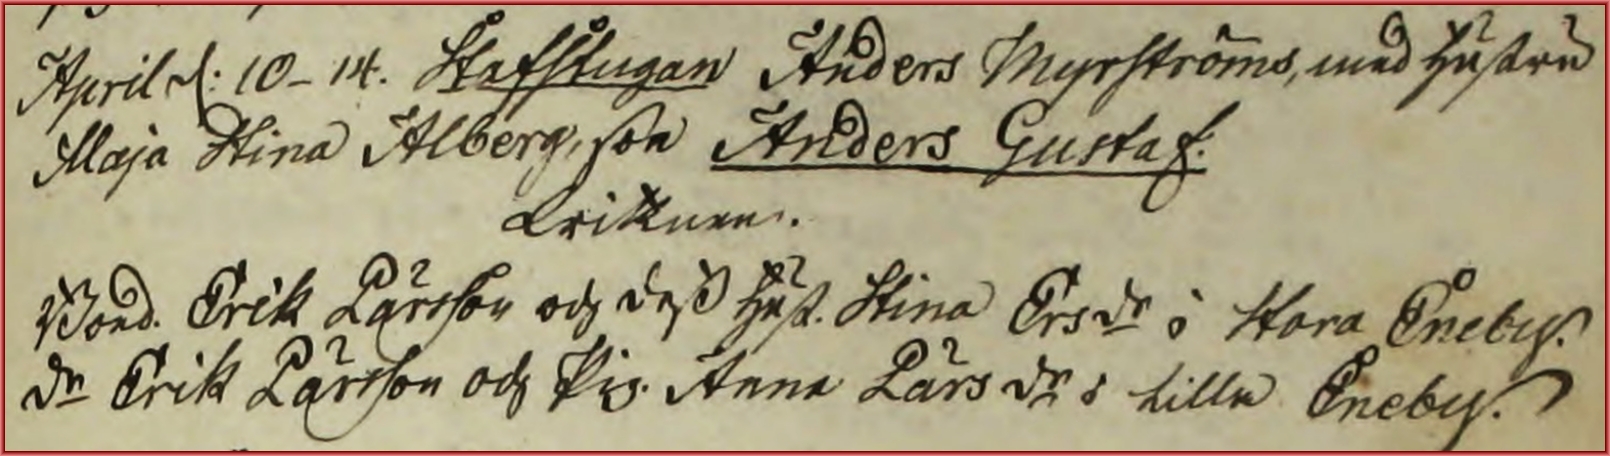 April d: 10 – 14. Stafstugan Anders Myrströms, med hustru
Maja Stina Alberg, son Anders Gustaf.
Vittnen.
Bond. Erik Pärsson och dess hust. Stina Ersdr i Stora Eneby.
dn Erik Pärsson och Pig. Anna Lars dr i Lilla Eneby.